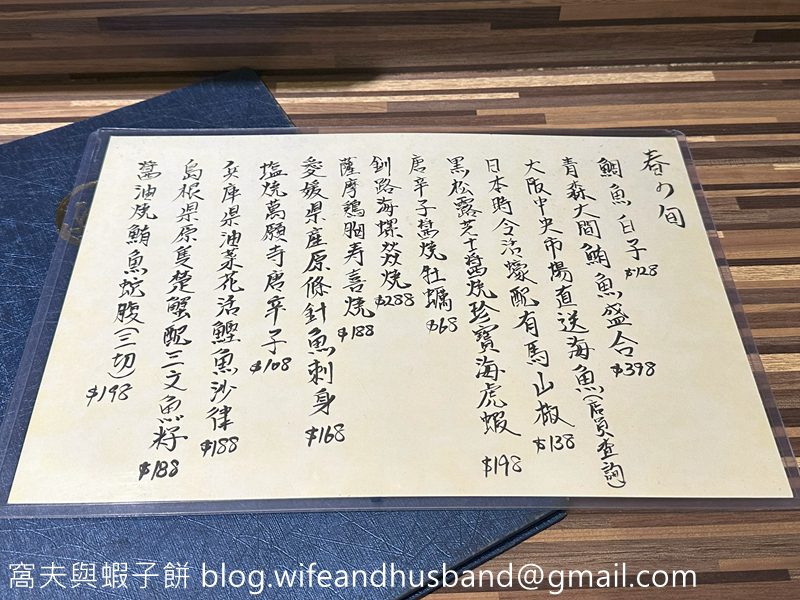 春の旬
鯛魚白子 $128
青森大間鮪魚盛合 $398
大阪中央市場直送海魚(店員查詢)
日本時令活蠔配有馬山椒 $138
黑松露芝士醬燒珍寶海虎蝦 $198
唐辛子醬燒牡蠣 $68
釧路海螺燒 $288
薩摩鶏胸寿喜燒 $188
愛媛県產原條針魚刺身 $168
塩燒萬願寺唐辛子 $108
兵庫県油菜花活鰹魚沙律 $188
島根県原隻楚蟹配三文魚籽 $188
醬油燒鮪魚蛇腹(三切) $198
窩夫與蝦子餅 blog.wifeandhusband@gmail.com